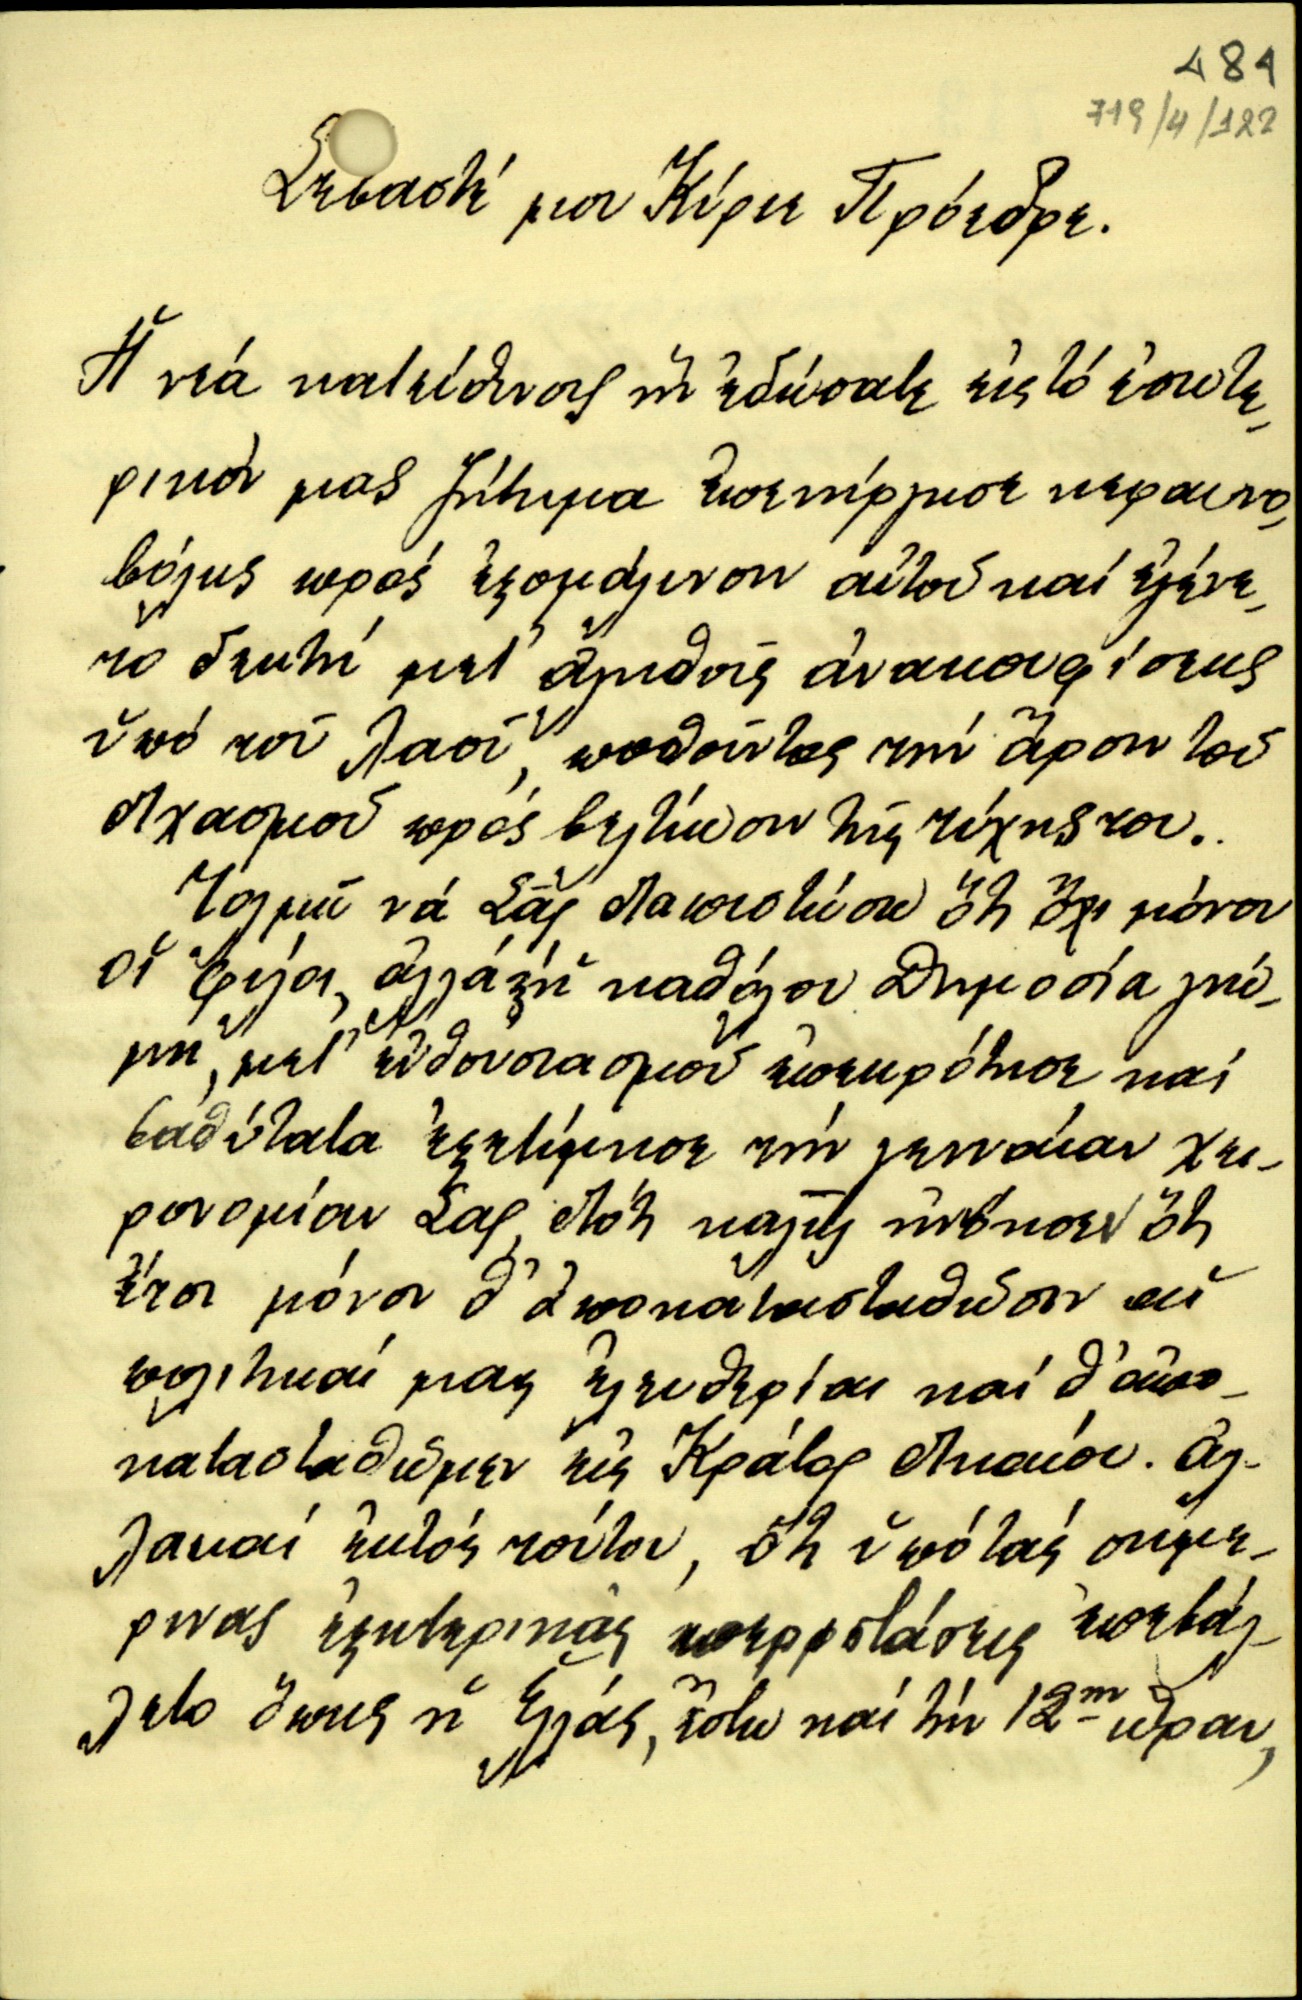 481
719/4/122
Σεβαστέ μου Κύριε Πρόεδρε.
Ἡ νέα κατεύθυνσις ἣν ἐδώσατε εἰς τό ἐσωτε-
ρικόν μας ζήτημα ἐπενήργησε κεραυνο-
βόλως πρός ἐξομάλυνσιν αὐτοῦ καί ἐγένε-
το δεκτή μετ' ἀληθοῦς ἀνακουφίσεως
ὑπό τοῦ λαοῦ, ποθοῦντος τήν ἄρσιν τοῦ
διχασμοῦ πρός βελτίωσιν τῆς τύχης του.
Τολμῶ νά Σᾶς διαπιστώσω ὅτι ὄχι μόνον
οἱ φίλοι, ἀλλά καί ἡ καθόλου Δημοσία γνώ-
μη, μετ' ἐνθουσιασμοῦ ἐπεκρότησε καί
βαθύτατα ἐξετίμησε τήν γενναίαν χει-
ρονομίαν Σας, διότι καλῶς ἠννόησεν ὅτι
ἔτσι μόνον θ' ἀποκατασταθῶσιν αἱ
πολιτικαί μας ἐλευθερίαι καί θ' ἀπο-
κατασταθῶμεν εἰς Κράτος Δικαίου. Ἀλ-
λά καί ἐκτός τούτου, ὅτι ὑπό τάς σημε-
ρινας ἐξωτερικάς περιστάσεις ἐπεβάλ-
λετο ὅπως ἡ Ἑλλάς, ἔστω καί τήν 12ην ὥραν,